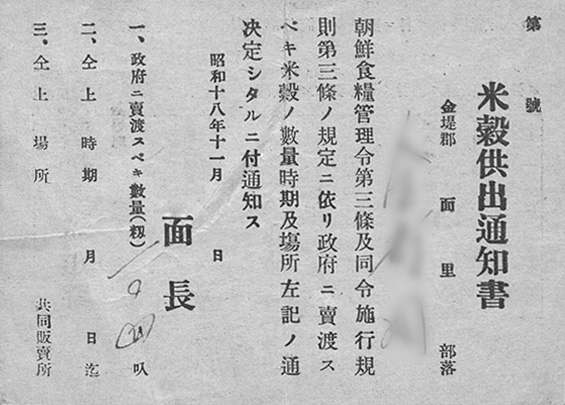 第　　號
米穀供出通知書
金堤郡　面　里　部落
朝鮮食糧管理令第三條及同令施行規
則第三條ノ規定ニ依リ政府ニ賣渡ス
ベキ米穀ノ數量時期及場所左記ノ通
決定シタルニ付通知ス
昭和十八年十一月　　日
面長
一、政府ニ賣渡スベキ數量(籾)　　叺
二、仝上時期　　月　　日迄
三、仝上場所　　共同販賣所